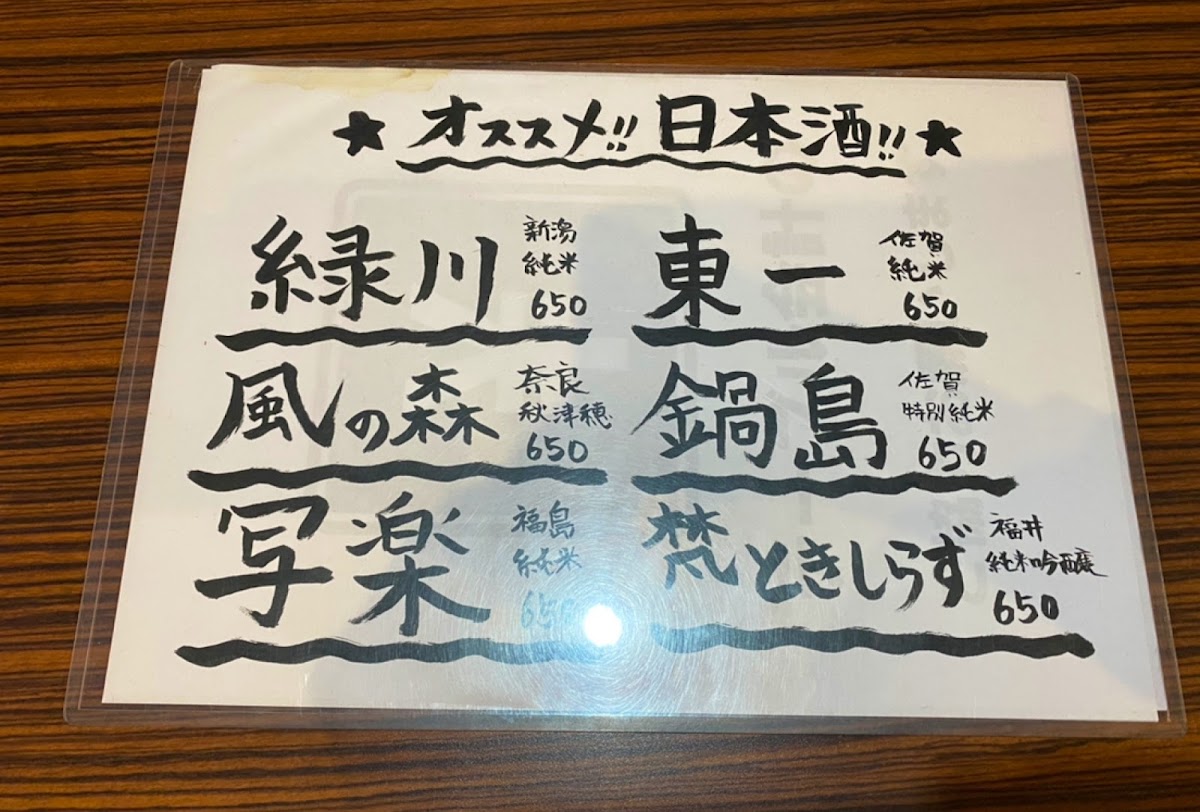 ★オススメ!!日本酒!!★
緑川
新潟
純米
650
東一
佐賀
純米
650
風の森
奈良
秋津穂
650
鍋島
佐賀
特別純米
650
写楽
福島
純米
650
梵ときしらず
福井
純米吟醸
650